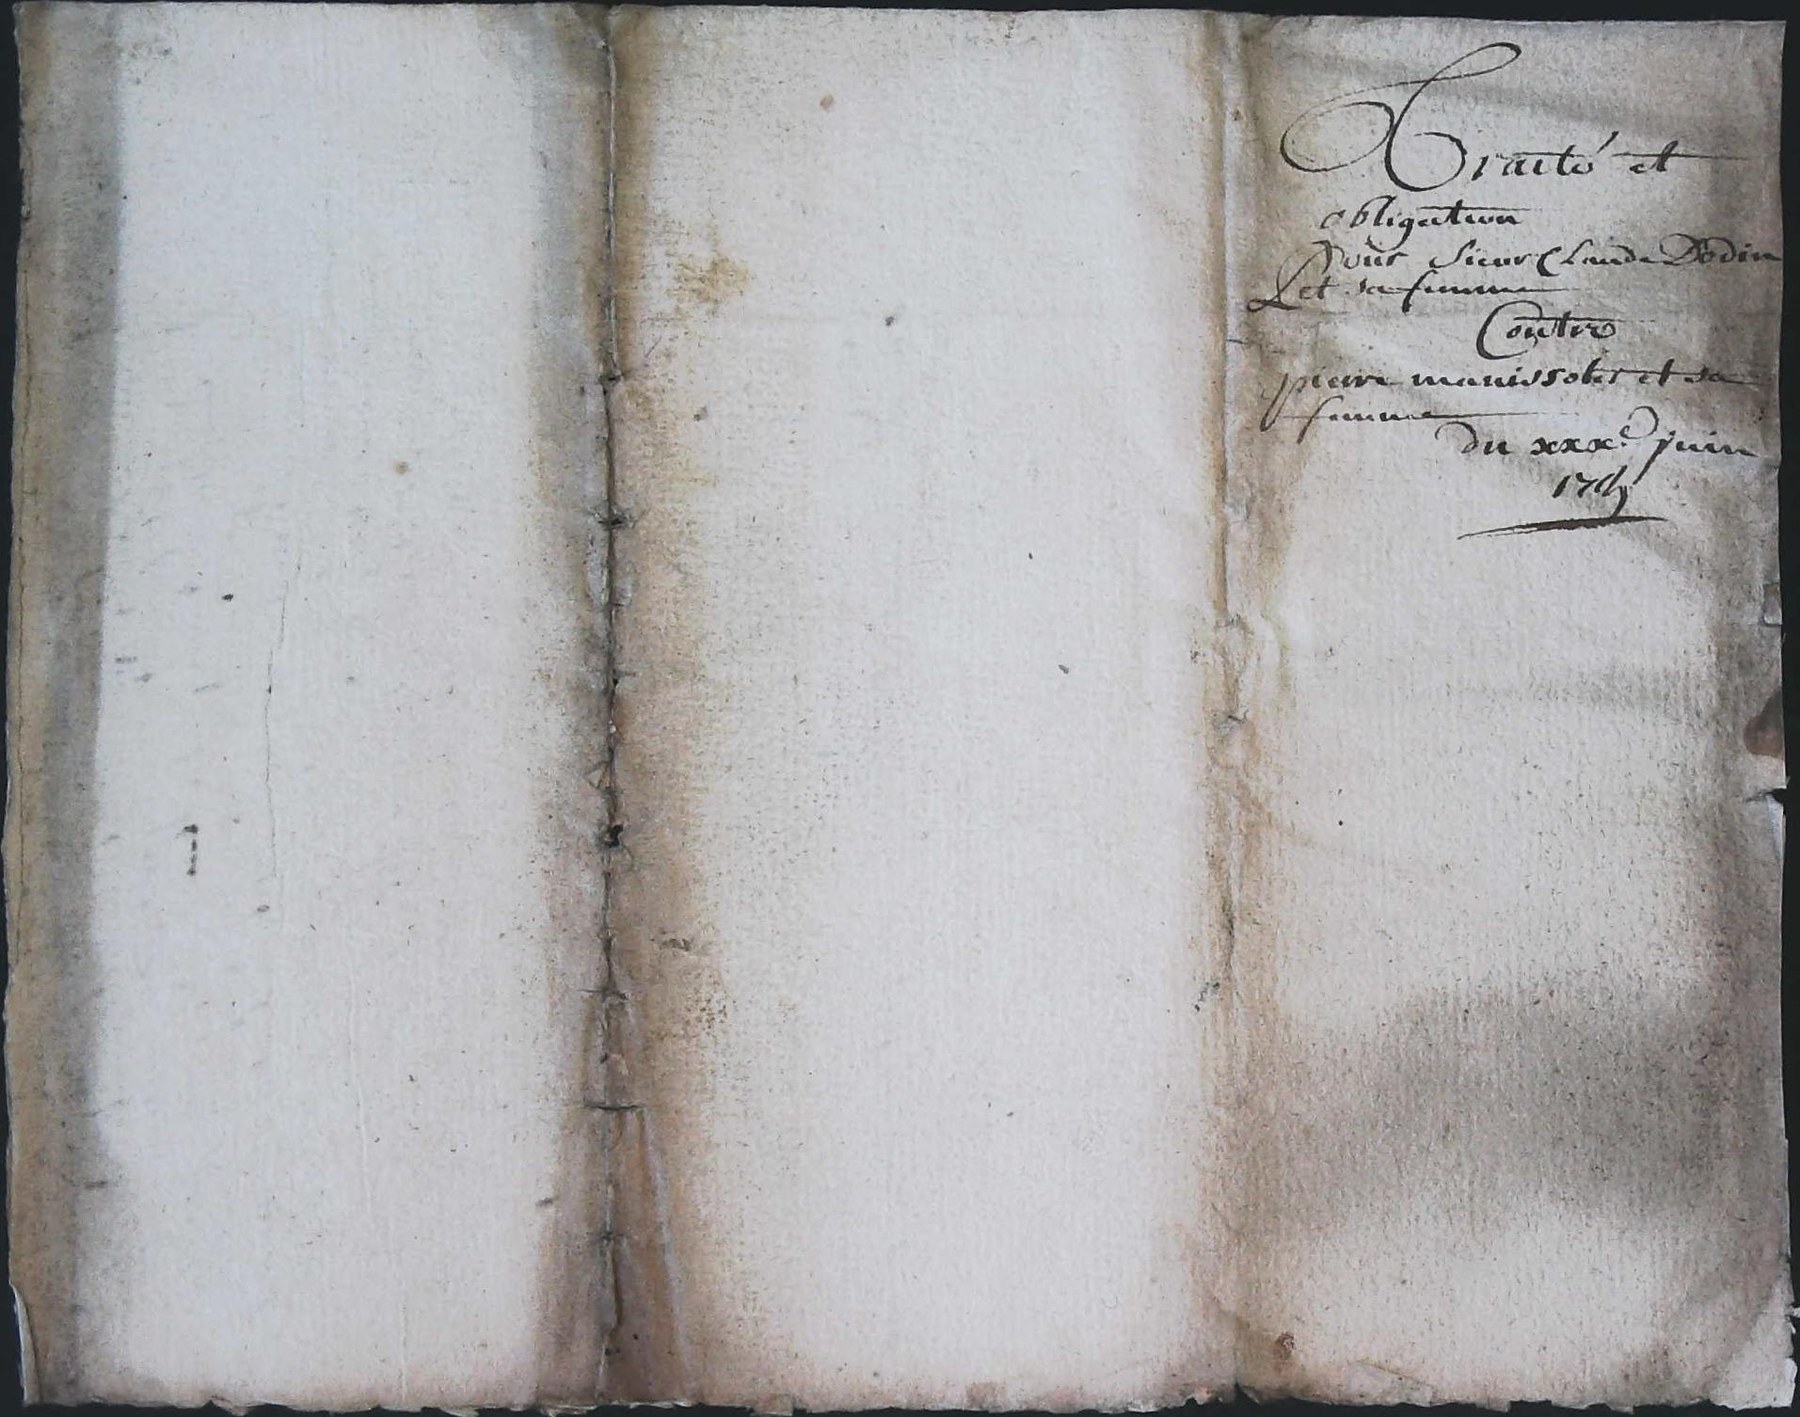 Traité et
obligation
pour Sieur Claude Dodin
et sa femme
Contre
pierre manissolés et sa
femme
du xxx.e juin